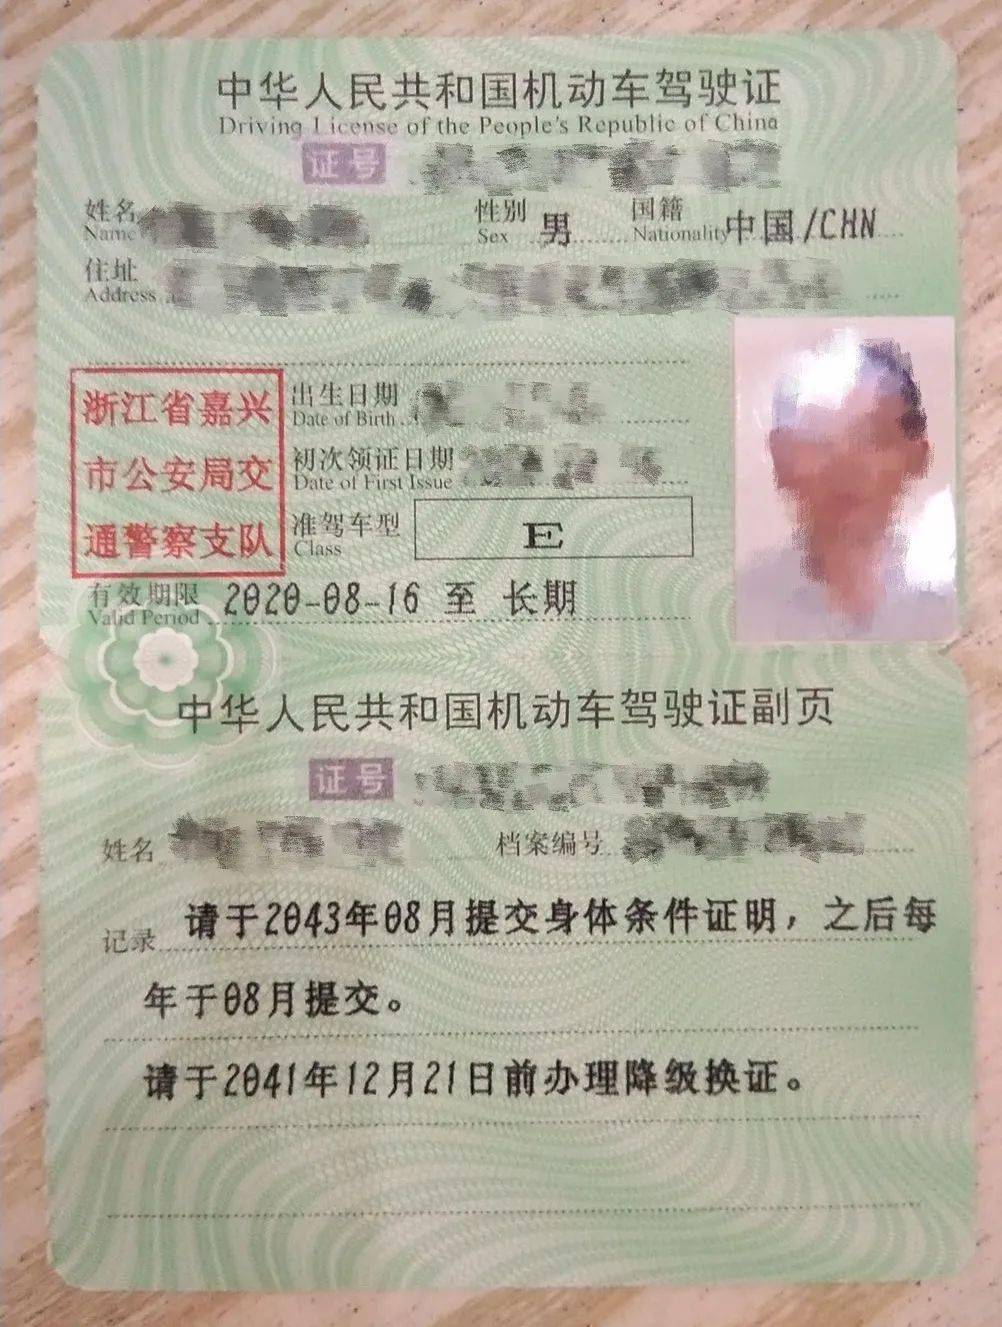 中华人民共和国机动车驾驶证
Driving License of the People's Republic of China
证号
姓名
Name
性别 男
Sex
国籍 中国/CHN
Nationality
住址
Address
浙江省嘉兴
市公安局交
通警察支队
出生日期
Date of Birth
初次领证日期
Date of First Issue
准驾车型 E
Class
有效期限 2020-08-16 至 长期
Valid Period
中华人民共和国机动车驾驶证副页
证号
姓名 档案编号
记录 请于2043年08月提交身体条件证明，之后每
年于08月提交。
请于2041年12月21日前办理降级换证。